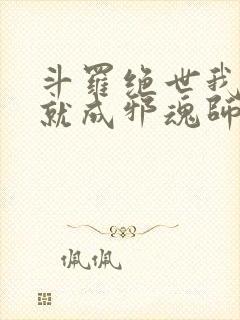 斗羅绝世我
就成邪魂師
佩佩